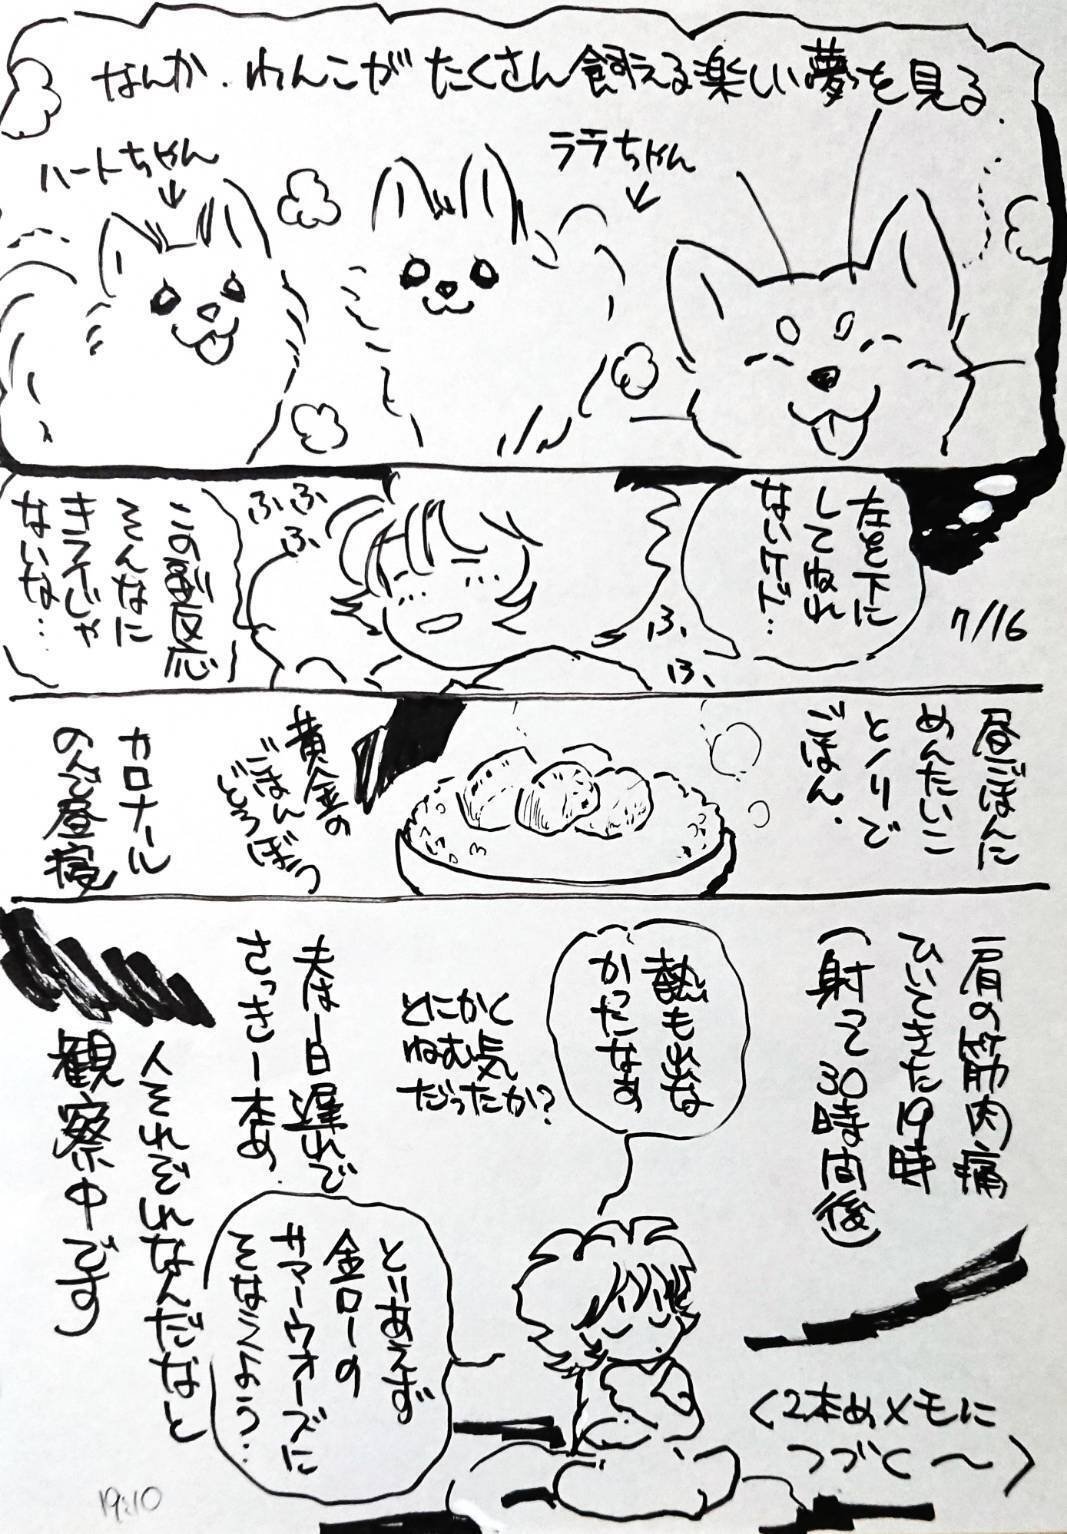 なんか、わんこがたくさん飼える楽しい夢を見る
ララちゃん
ハートちゃん
左を下に
してねれ
ないケド…
7/16
ふ、
ふ、
ふふ
ふ
この副反応
そんなに
きらいじゃ
ないな…
昼ごはんに
めんたいこ
とノリで
ごはん。
黄金の
ごはんどろぼう
カロナール
のんで昼寝
肩の筋肉痛
ひいてきた19時
(射って30時間後)
熱も出な
かったなぁ
とにかく
ねむ気
だったか?
夫は一日遅れで
さっき一本め
とりあえず
金ローの
サマーウォーズに
そなえよう…
人それぞれなんだなと
観察中です
〈2本めメモに
つづく〜〉
19:10